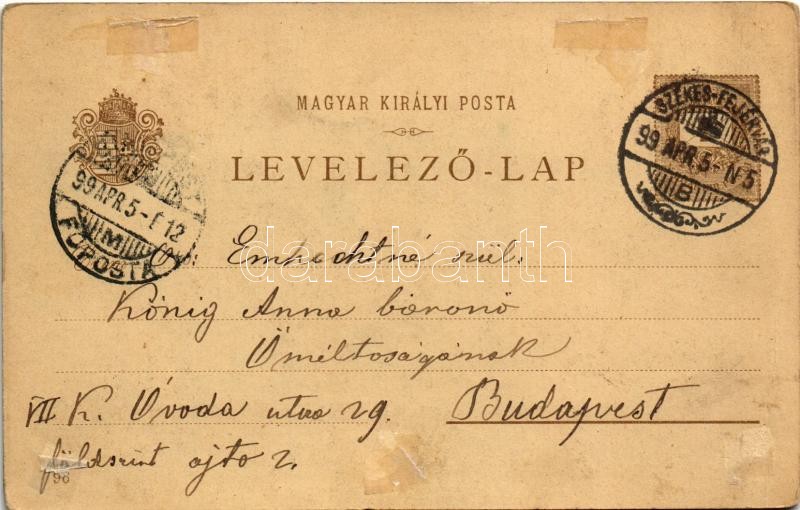 MAGYAR KIRÁLYI POSTA
LEVELEZŐ-LAP
SZÉKES-FEJÉRVÁR
99 APR. 5-N 5
B
99 APR. 5-
12
M
FŐPOSTA
szül.
König Anna bárónő
Őméltóságának
VII K. Óvoda utca 29. Budapest
földszint ajto 2.
darabanth